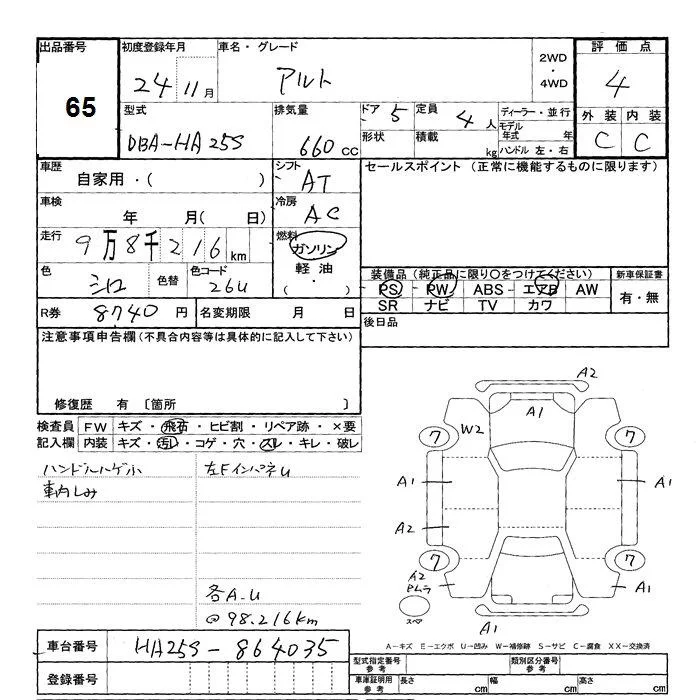 出品番号 初度登録年月 車名・グレード 2WD・4WD 評価点
65 24 11月 アルト 4
型式 排気量 ドア 5 定員 4人 ディーラー・並行 外装 内装
DBA-HA25S 660cc 形状 積載 kg モデル年式 年 C C
ハンドル 左・右
車歴 シフト セールスポイント (正常に機能するものに限ります)
自家用・( ) AT
車検 冷房
年 月( 日) AC
走行 燃料
9万8千216km ガソリン
色 色替 色コード 軽油 装備品(純正品に限り○をつけてください) 新車保証書
シロ 26U ・( ) PS PW ABS エアB AW 有・無
SR ナビ TV カワ
R券 8740円 名変期限 月 日 後日品
注意事項申告欄(不具合内容等は具体的に記入して下さい)
修復歴 有 〔箇所 〕
検査員 FW キズ・飛石・ヒビ割・リペア跡・×要
記入欄 内装 キズ・汚レ・コゲ・穴・スレ・キレ・破レ
ハンドルハゲ小 左FインパネU
車内しみ
各A.U
@98.216km
A2
A1
W2
7 7
A1 A1
A2
7 7
A2
A1
スペア
A1
A-キズ E-エクボ U-凹み W-補修跡 S-サビ C-腐食 XX-交換済
車台番号 HA25S-864035
登録番号
型式指定番号 参考 類別区分番号 参考
車庫証明用 参考 長さ cm 幅 cm 高さ cm